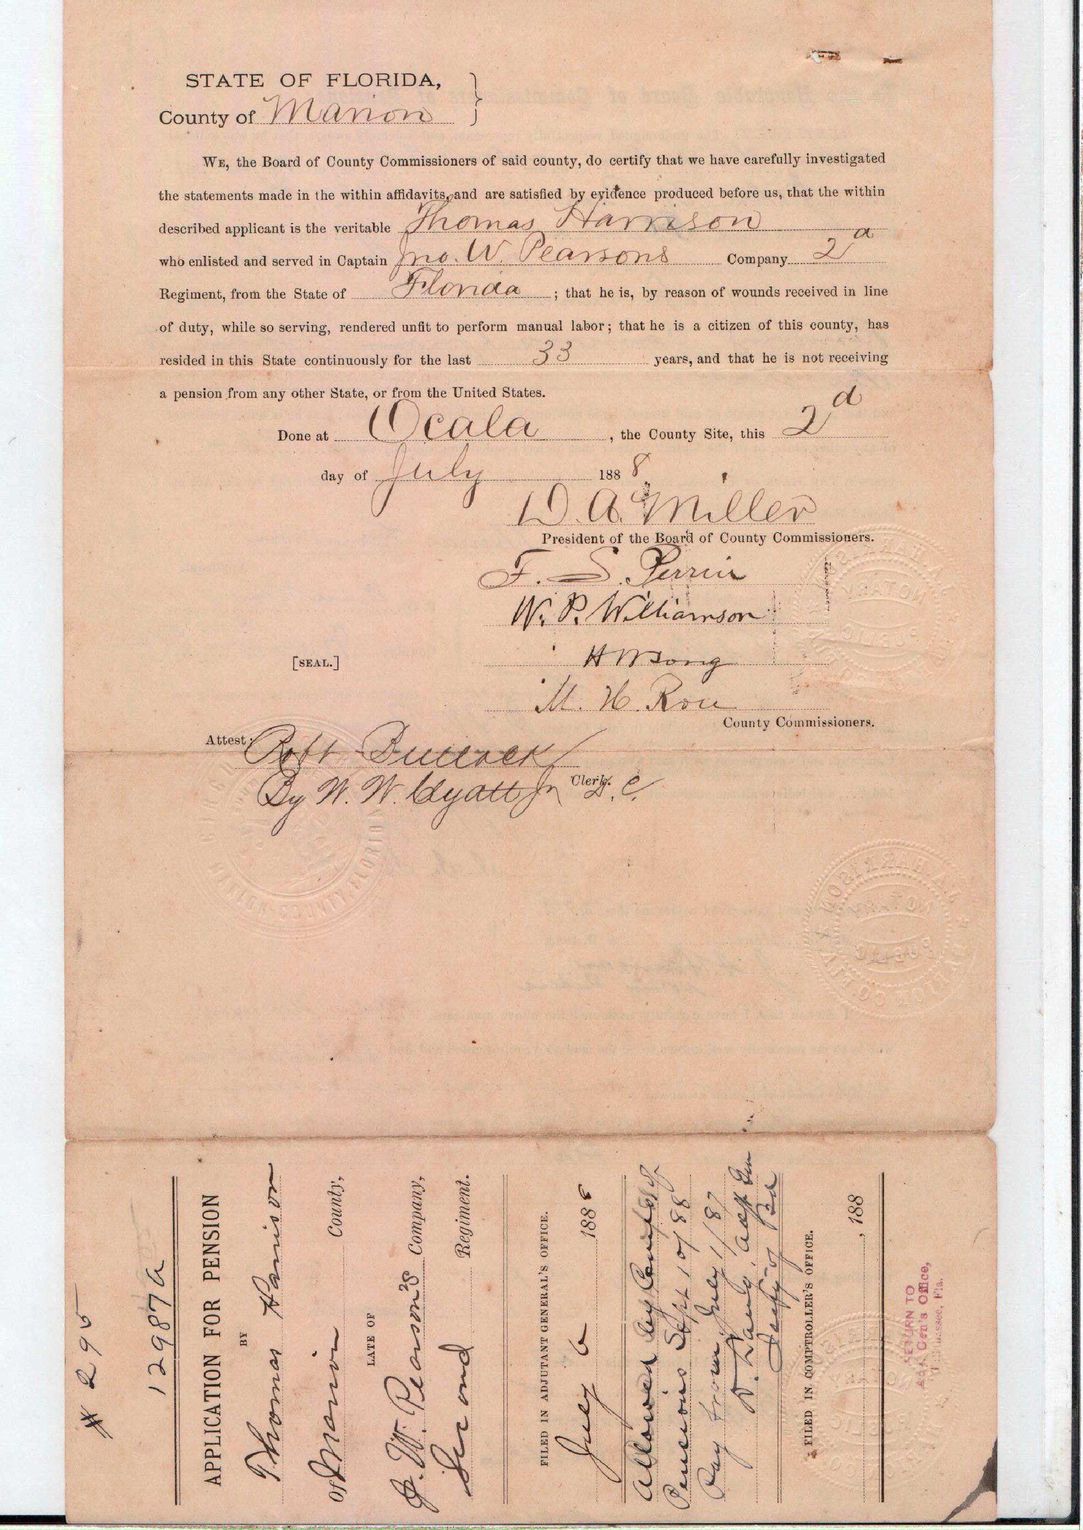 STATE OF FLORIDA,
County of Marion
WE, the Board of County Commissioners of said county, do certify that we have carefully investigated
the statements made in the within affidavits, and are satisfied by evidence produced before us, that the within
described applicant is the veritable Thomas Harrison
who enlisted and served in Captain Jno. W. Pearsons Company 2d
Regiment, from the State of Florida ; that he is, by reason of wounds received in line
of duty, while so serving, rendered unfit to perform manual labor; that he is a citizen of this county, has
resided in this State continuously for the last 33 years, and that he is not receiving
a pension from any other State, or from the United States.
Done at Ocala , the County Site, this 2d
day of July 1888
D. A. Miller
President of the Board of County Commissioners.
F. S. Perrin
W. P. Williamson
[SEAL.]
H W Long
M. H. Rou
County Commissioners.
Attest: Robt Bullock
By W. W. Clyatt Jr Clerk. D. C.
# 295
12987a
APPLICATION FOR PENSION
BY
Thomas Harrison
Of Marion County,
LATE OF
J. W. Pearson's Company,
Second Regiment.
FILED IN ADJUTANT GENERAL'S OFFICE.
July 6 1888
Allowed by Comp of
Pensions Sept 10/88
Pay from July 1/87
D. Lang, Adjt Gen
Secty of Bd
FILED IN COMPTROLLER'S OFFICE.
, 188
RETURN TO
Adj. Gen's Office,
Tallahassee, Fla.
J. A. HARRISON
NOTARY
PUBLIC
MARION COUNTY